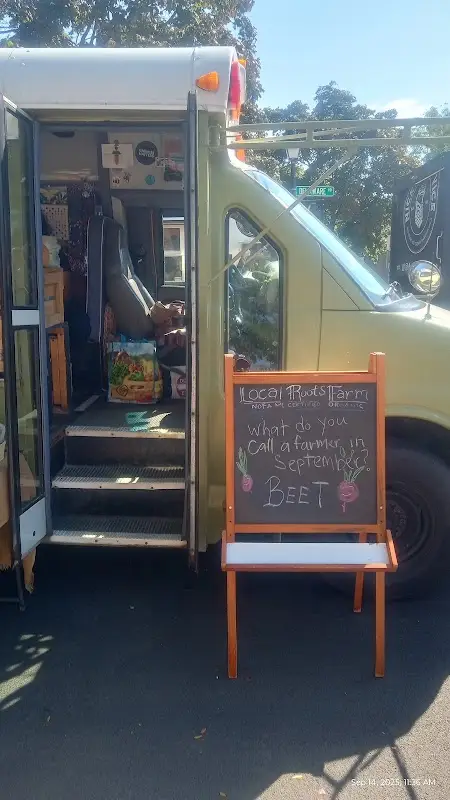 DELAWARE
Local Roots Farm
What do you
Call a farmer in
September?
BEET
Sep 14, 2025, 11:26 AM